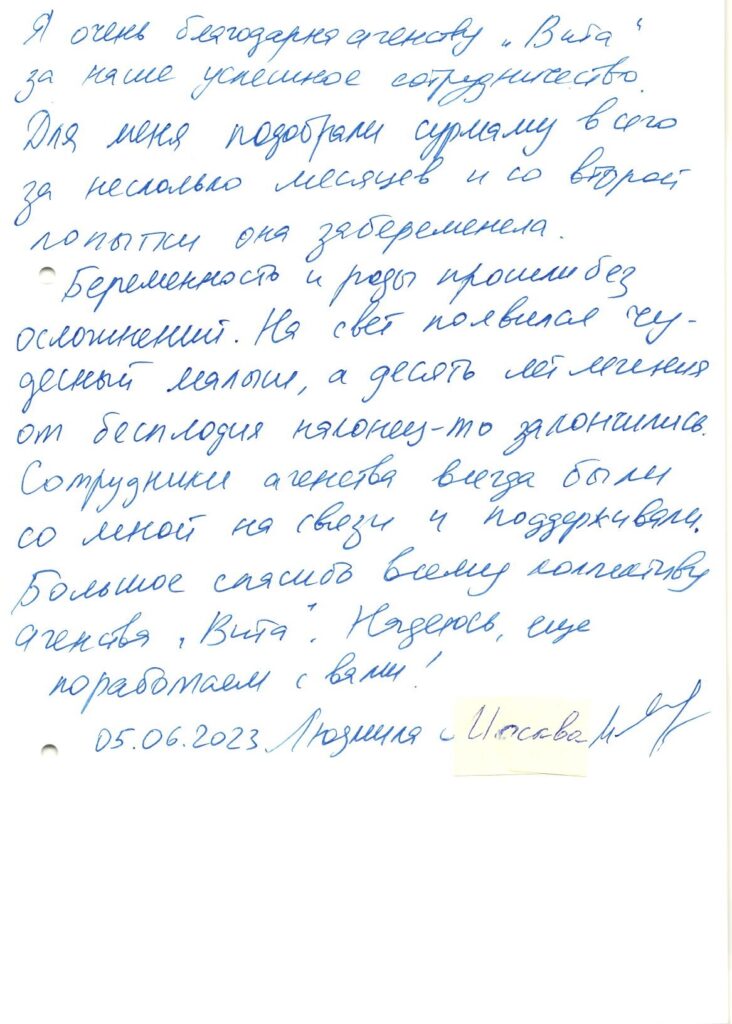 Я очень благодарна агенству „Вита“
за наше успешное сотрудничество.
Для меня подобрали сурмаму всего
за несколько месяцев и со второй
попытки она забеременела.
Беременность и роды прошли без
осложнений. На свет появился чу-
десный малыш, а десять лет лечения
от бесплодия наконец-то закончились.
Сотрудники агенства всегда были
со мной на связи и поддерживали.
Большое спасибо всему коллективу
агенства „Вита“. Надеюсь, еще
поработаем с вами!
05.06.2023 Людмила Москва